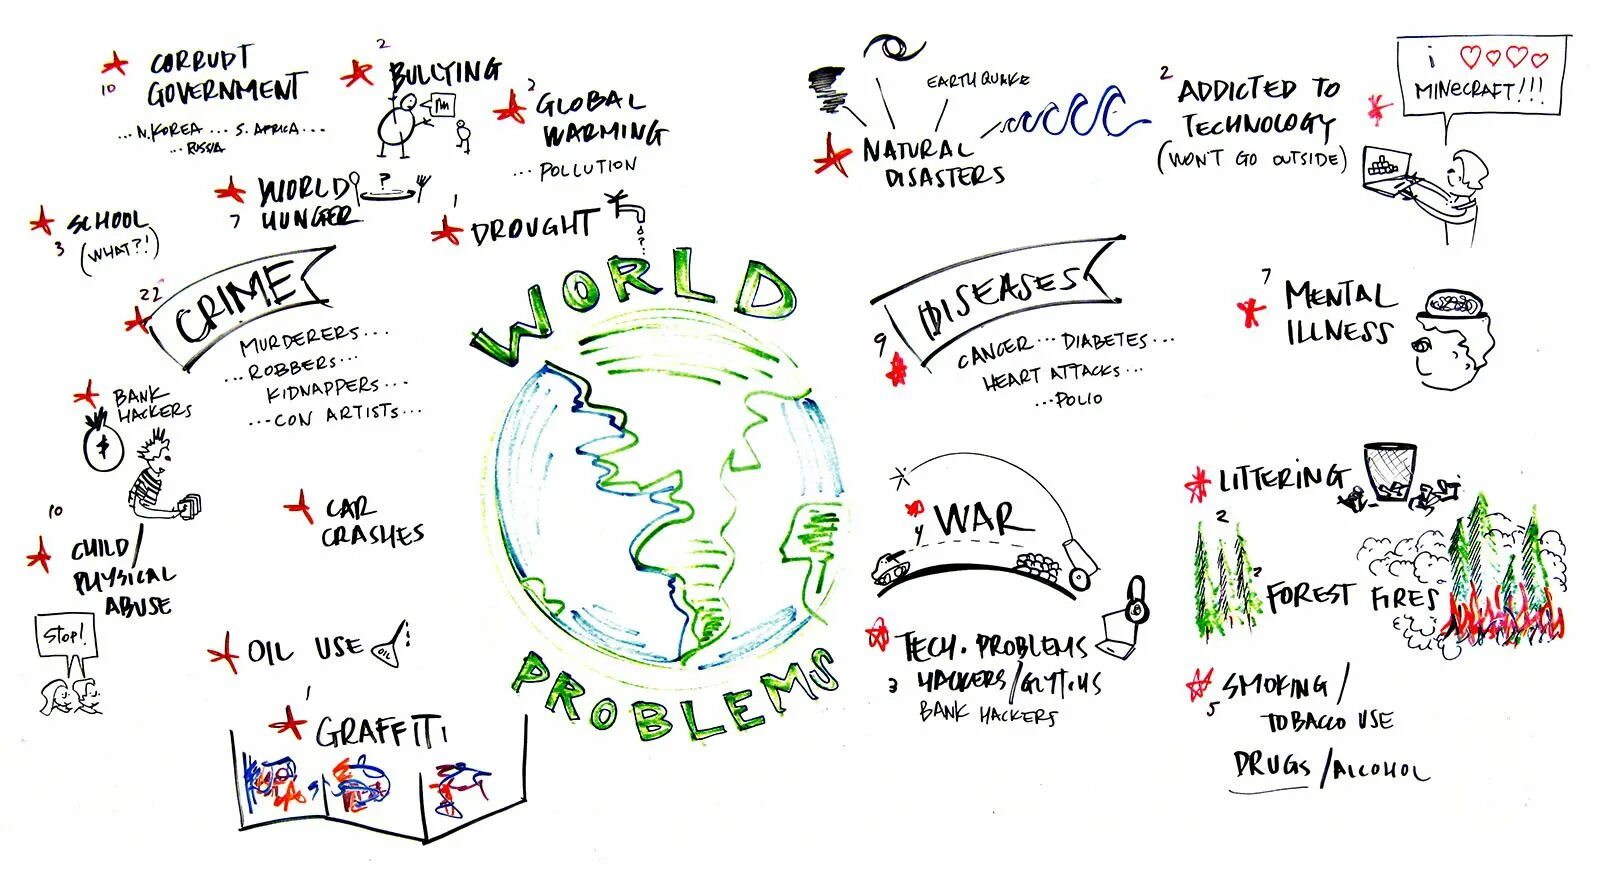 CORRUPT
10 GOVERNMENT
...N.KOREA ... S. AFRICA...
...RUSSIA
2
BULLYING
2
GLOBAL
WARMING
...POLLUTION
WORLD
7 HUNGER
?
1
DROUGHT
SCHOOL
3 (WHAT?!)
22
CRIME
MURDERERS...
...ROBBERS...
KIDNAPPERS...
...CON ARTISTS...
BANK
HACKERS
$
10
CHILD/
PHYSICAL
ABUSE
STOP!
CAR
CRASHES
OIL USE
OIL
1
GRAFFITI
WORLD
PROBLEMS
EARTHQUAKE
NATURAL
DISASTERS
2
ADDICTED TO
TECHNOLOGY
(WON'T GO OUTSIDE)
i ♡♡♡♡
MINECRAFT!!!
DISEASES
9
CANCER... DIABETES...
HEART ATTACKS...
...POLIO
7
MENTAL
ILLNESS
4 WAR
TECH. PROBLEMS
3 HACKERS/GLYTCHS
BANK HACKERS
LITTERING
2
2
FOREST FIRES
SMOKING/
5
TOBACCO USE
DRUGS/ALCOHOL